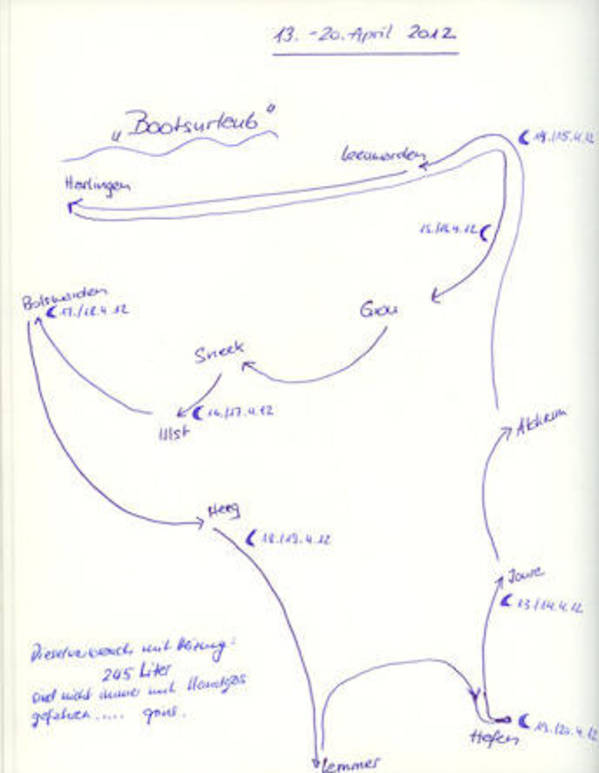 13. - 20. April 2012
„Bootsurlaub“
Leeuwarden
14./15.4.12
Harlingen
15./16.4.12
Bolswarden
17./18.4.12
Grou
Sneek
16./17.4.12
Illst
Akkrum
Heeg
18./19.4.12
Joure
13/14.4.12
Dieselverbrauch mit Heizung:
245 Liter
und nicht immer mit Standgas
gefahren ..... grins.
Hafen
19./20.4.12
Lemmer